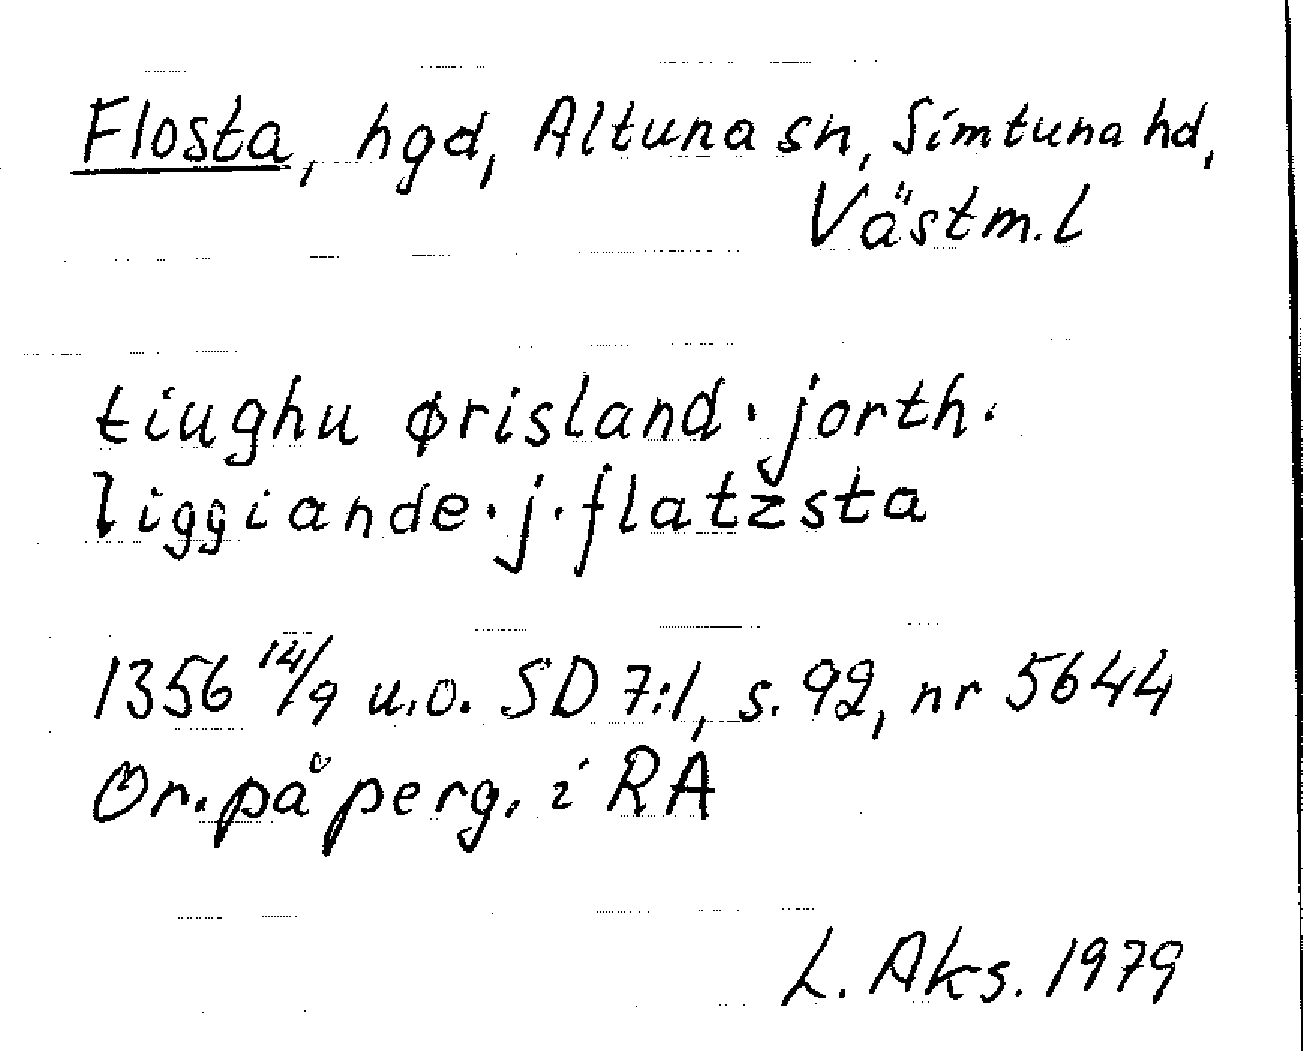 Flosta, hgd, Altuna sn, Simtuna hd,
Västm. l
tiughu ørisland · jorth ·
liggiande · j · flatzsta
1356 14/9 u.o. SD 7:1, s. 92, nr 5644
Or. på perg. i RA
L. Aks. 1979